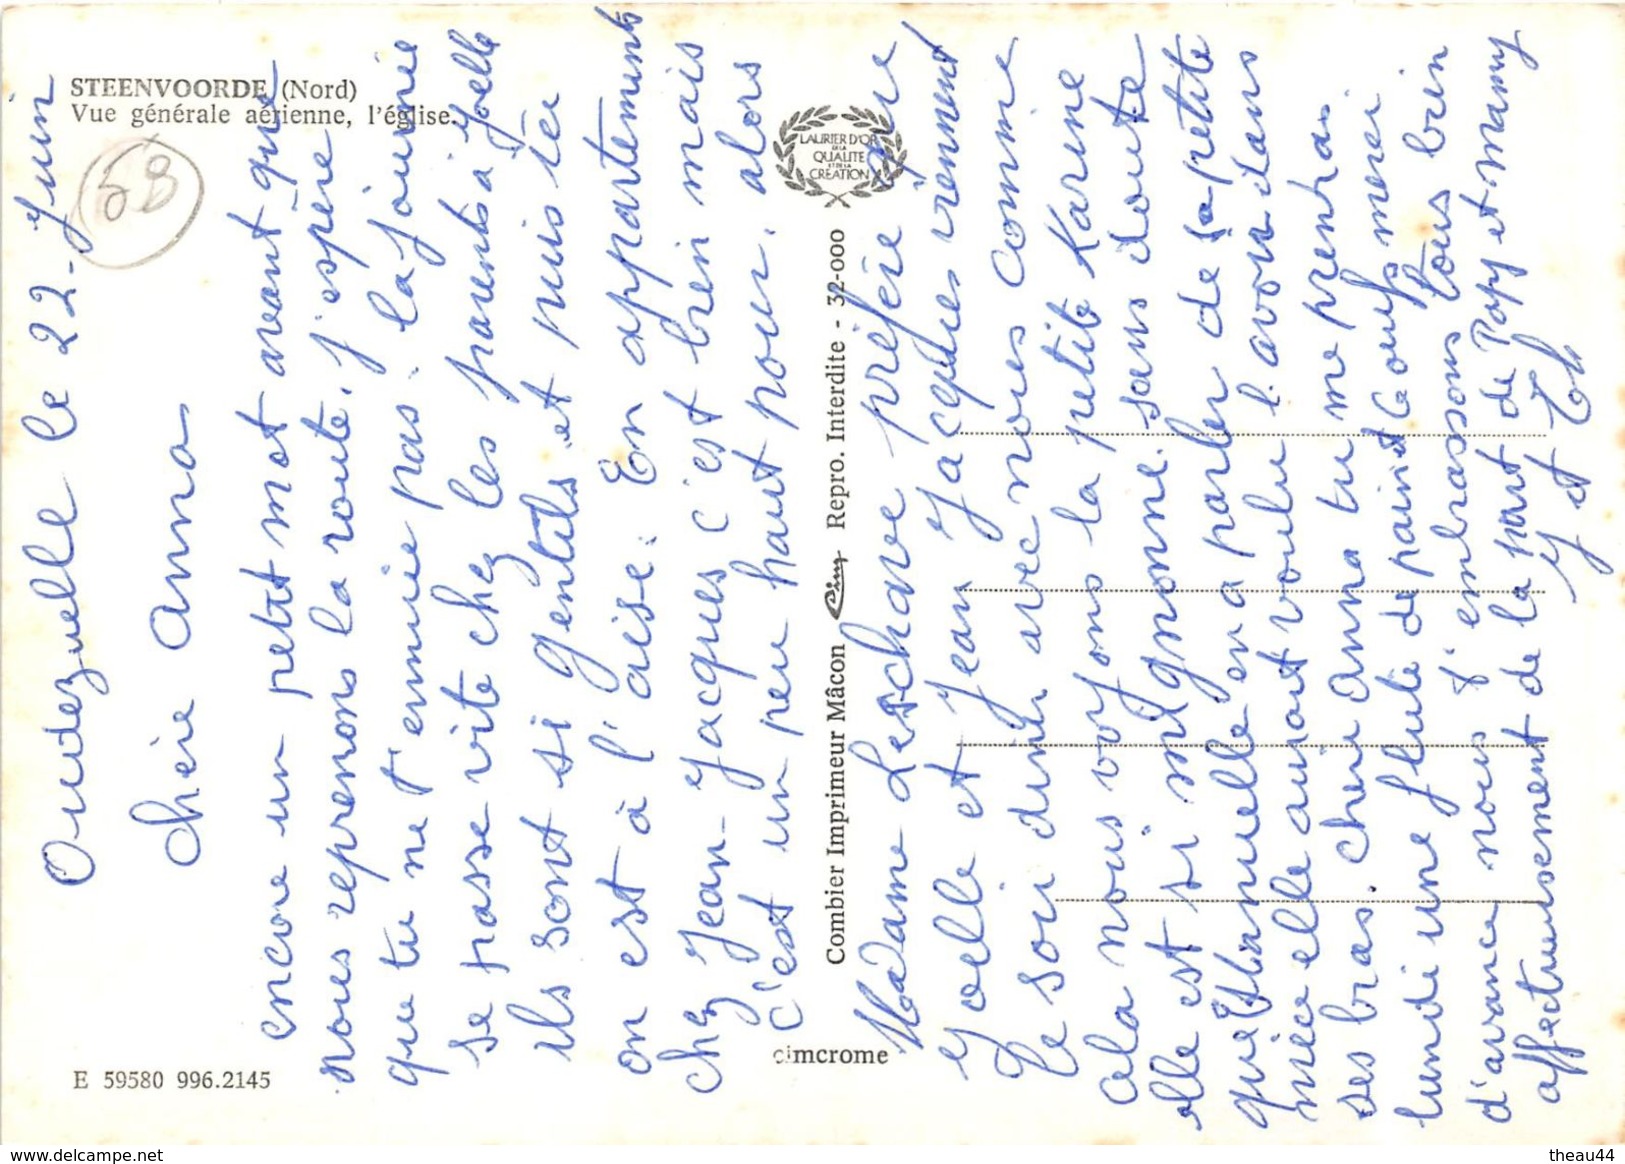 STEENVOORDE (Nord)
Vue générale aérienne, l'église.
59
E 59580 996.2145
LAURIER D'OR
DE LA
QUALITE
ET DE LA
CREATION
cimcrome
Combier Imprimeur Mâcon Cim Repro. Interdite - 32-000
Oudezeelle le 22-Juin
Chère Anna
encore un petit mot avant que
nous reprenons la route. j'espère
que tu ne t'ennuie pas. la journée
se passe vite chez les parents à Joelle
ils sont si gentils. et puis ici
on est à l'aise. En appartements
chez Jean-Jacques c'est bien mais
c'est un peu haut pour. alors
Madame Leschave préfère que
Joelle et Jean Jacques viennent
le soir diner avec nous comme
cela nous voyons la petite Karine
elle est si mignonne. sans doute
que Emanuelle en a parler de sa petite
nièce elle aurait voulu l'avoir dans
ses bras. Chère Anna tu me prendras
lundi une flute de pain et coufs merci
d'avance nous t'embrassons tous bien
affectueusement de la part de Papy et Mamy
J et
theau44